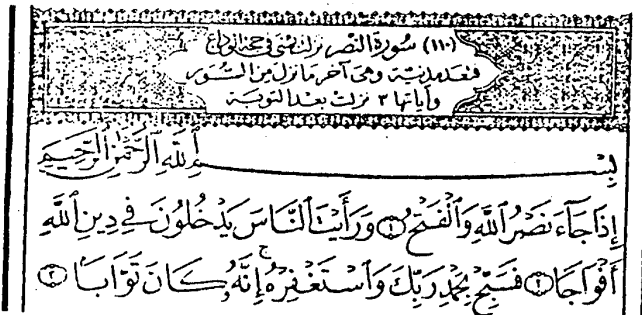 (١١٠) سُورَة النصر نزلت بمنى في حجة الوداع
فتعد مدنية وهى آخر ما نزل من السور
وآياتها ٣ نزلت بعد التوبة
بِسْمِ ٱللَّهِ ٱلرَّحْمَٰنِ ٱلرَّحِيمِ
إِذَا جَآءَ نَصْرُ ٱللَّهِ وَٱلْفَتْحُ ١ وَرَأَيْتَ ٱلنَّاسَ يَدْخُلُونَ فِى دِينِ ٱللَّهِ
أَفْوَاجًا ٢ فَسَبِّحْ بِحَمْدِ رَبِّكَ وَٱسْتَغْفِرْهُ ۚ إِنَّهُۥ كَانَ تَوَّابًۢا ٣